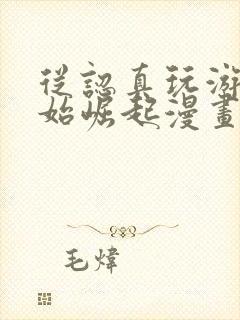 從認真玩游
始崛起漫畫
毛煒